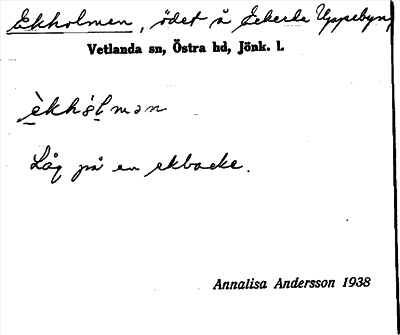 Ekholmen, ödet å Eckerda Uppebyn,
Vetlanda sn, Östra hd, Jönk. l.
èkhó̀lmən
Låg på en ekbacke.
Annalisa Andersson 1938